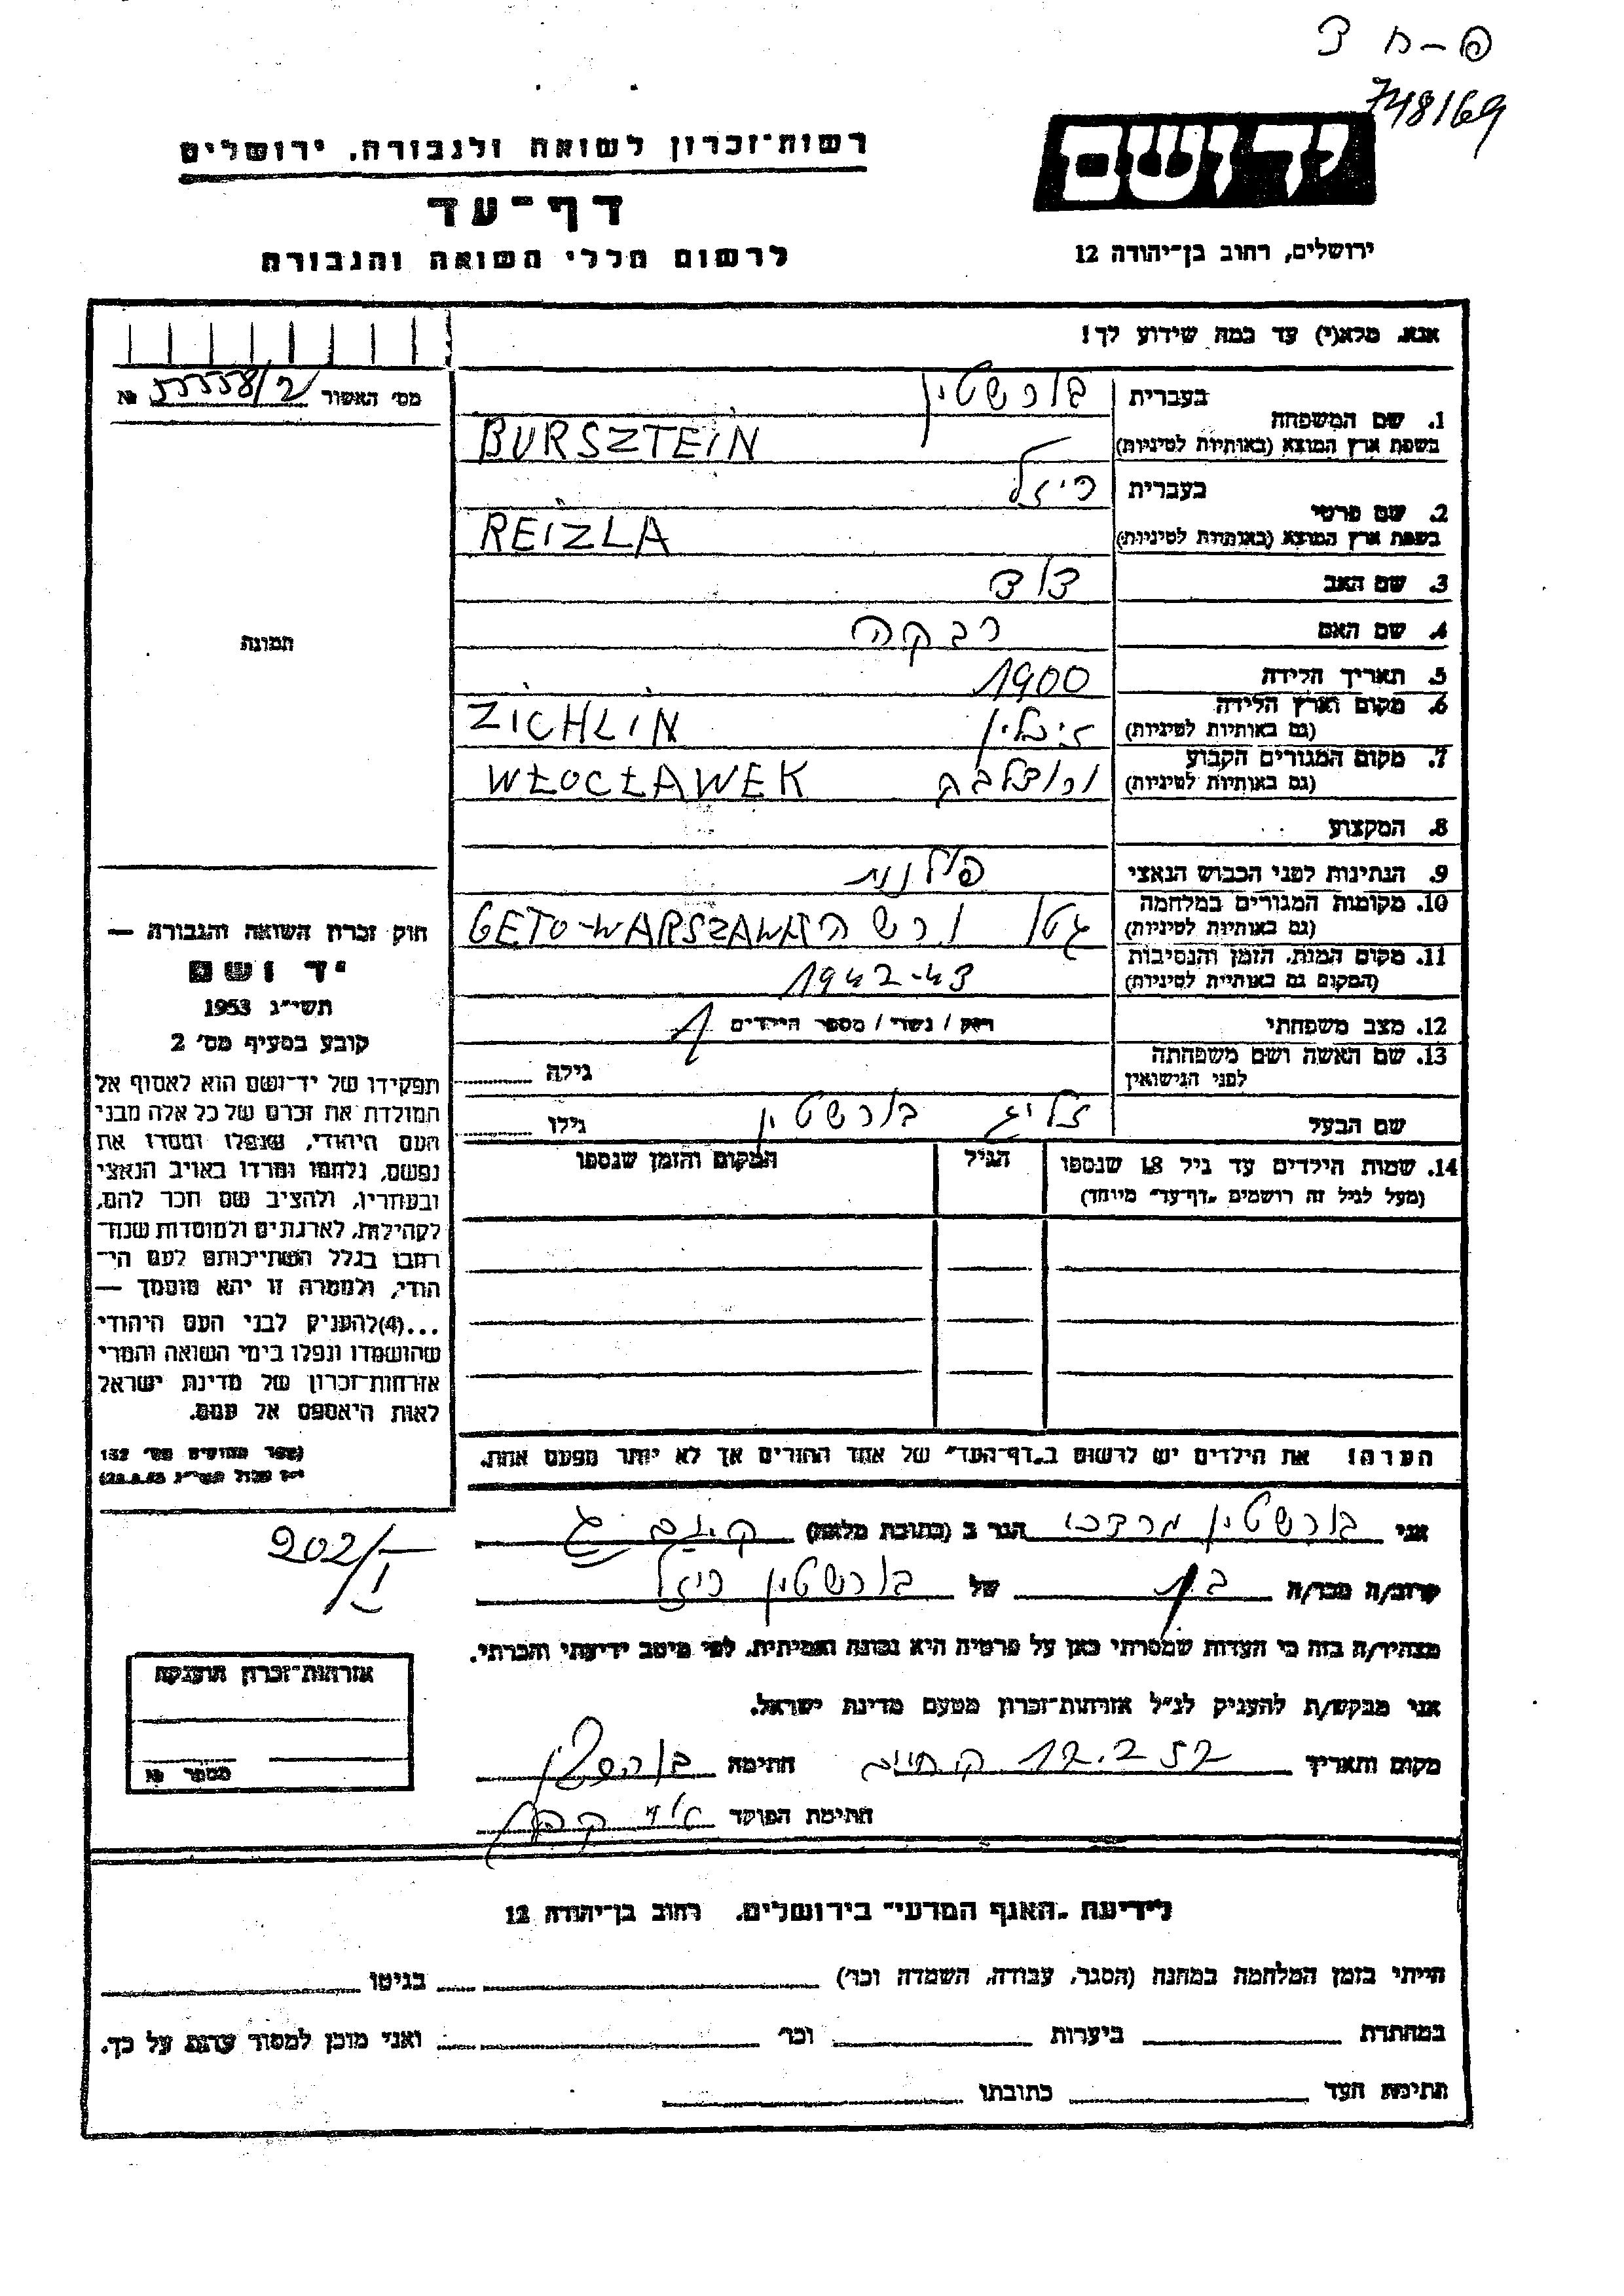 פ-ח צ
748/69
יד ושם
ירושלים, רחוב בן-יהודה 12
רשות-זכרון לשואה ולגבורה, ירושלים
דף-עד
לרשום חללי השואה והגבורה
אנא, מלא(י) עד כמה שידוע לך!
מס' האשור № 55558/2
1. שם המשפחה
בעברית בורשטין
בשפת ארץ המוצא (באותיות לטיניות) BURSZTEIN
2. שם פרטי
בעברית רייזל
בשפת ארץ המוצא (באותיות לטיניות) REIZLA
3. שם האב דוד
4. שם האם רבקה
5. תאריך הלידה 1900
6. מקום וארץ הלידה
(גם באותיות לטיניות) זיכלין ZICHLIN
7. מקום המגורים הקבוע
(גם באותיות לטיניות) WŁOCŁAWEK
8. המקצוע
9. הנתינות לפני הכבוש הנאצי פולנית
10. מקומות המגורים במלחמה
(גם באותיות לטיניות) גטו ורשה GETO-WARSZAWA
11. מקום המות, הזמן והנסיבות
(המקום גם באותיות לטיניות) 1942-43
12. מצב משפחתי רווק / נשוי / מספר הילדים 1
13. שם האשה ושם משפחתה
לפני הנישואין גילה
שם הבעל זליג בורשטין גילו
14. שמות הילדים עד גיל 18 שנספו
(מעל לגיל זה רושמים „דף-עד" מיוחד)
הגיל
המקום והזמן שנספו
הערה: את הילדים יש לרשום ב„דף-העד" של אחד ההורים אך לא יותר מפעם אחת.
תמונה
חוק זכרון השואה והגבורה —
יד ושם
תשי"ג 1953
קובע בסעיף מס' 2
תפקידו של יד-ושם הוא לאסוף אל
המולדת את זכרם של כל אלה מבני
העם היהודי, שנפלו ומסרו את
נפשם, נלחמו ומרדו באויב הנאצי
ובעוזריו, ולהציב שם וזכר להם,
לקהילות, לארגונים ולמוסדות שנח־
רבו בגלל השתייכותם לעם הי־
הודי, ולמטרה זו יהא מוסמך —
...(4)להעניק לבני העם היהודי
שהושמדו ונפלו בימי השואה והמרי
אזרחות-זכרון של מדינת ישראל
לאות היאספם אל עמם.
(ספר החוקים מס' 132
י"ז אלול תשי"ג 28.8.53)
202/I
אני בורשטין מרדכי הגר ב (כתובת מלאה)
קרוב/ה מכר/ה בן של בורשטין רייזל
מצהיר/ה בזה כי העדות שמסרתי כאן על פרטיה היא נכונה ואמיתית, לפי מיטב ידיעתי והכרתי.
אני מבקש/ת להעניק לנ"ל אזרחות-זכרון מטעם מדינת ישראל.
מקום ותאריך 12.2.57 חתימה
חתימת הפוקד
אזרחות-זכרון הוענקה
מספר №
לידיעת „האגף המדעי" בירושלים, רחוב בן-יהודה 12
הייתי בזמן המלחמה במחנה (הסגר, עבודה, השמדה וכו') בגיטו
במחתרת ביערות וכו' ואני מוכן למסור עדות על כך.
חתימת העד כתובתו